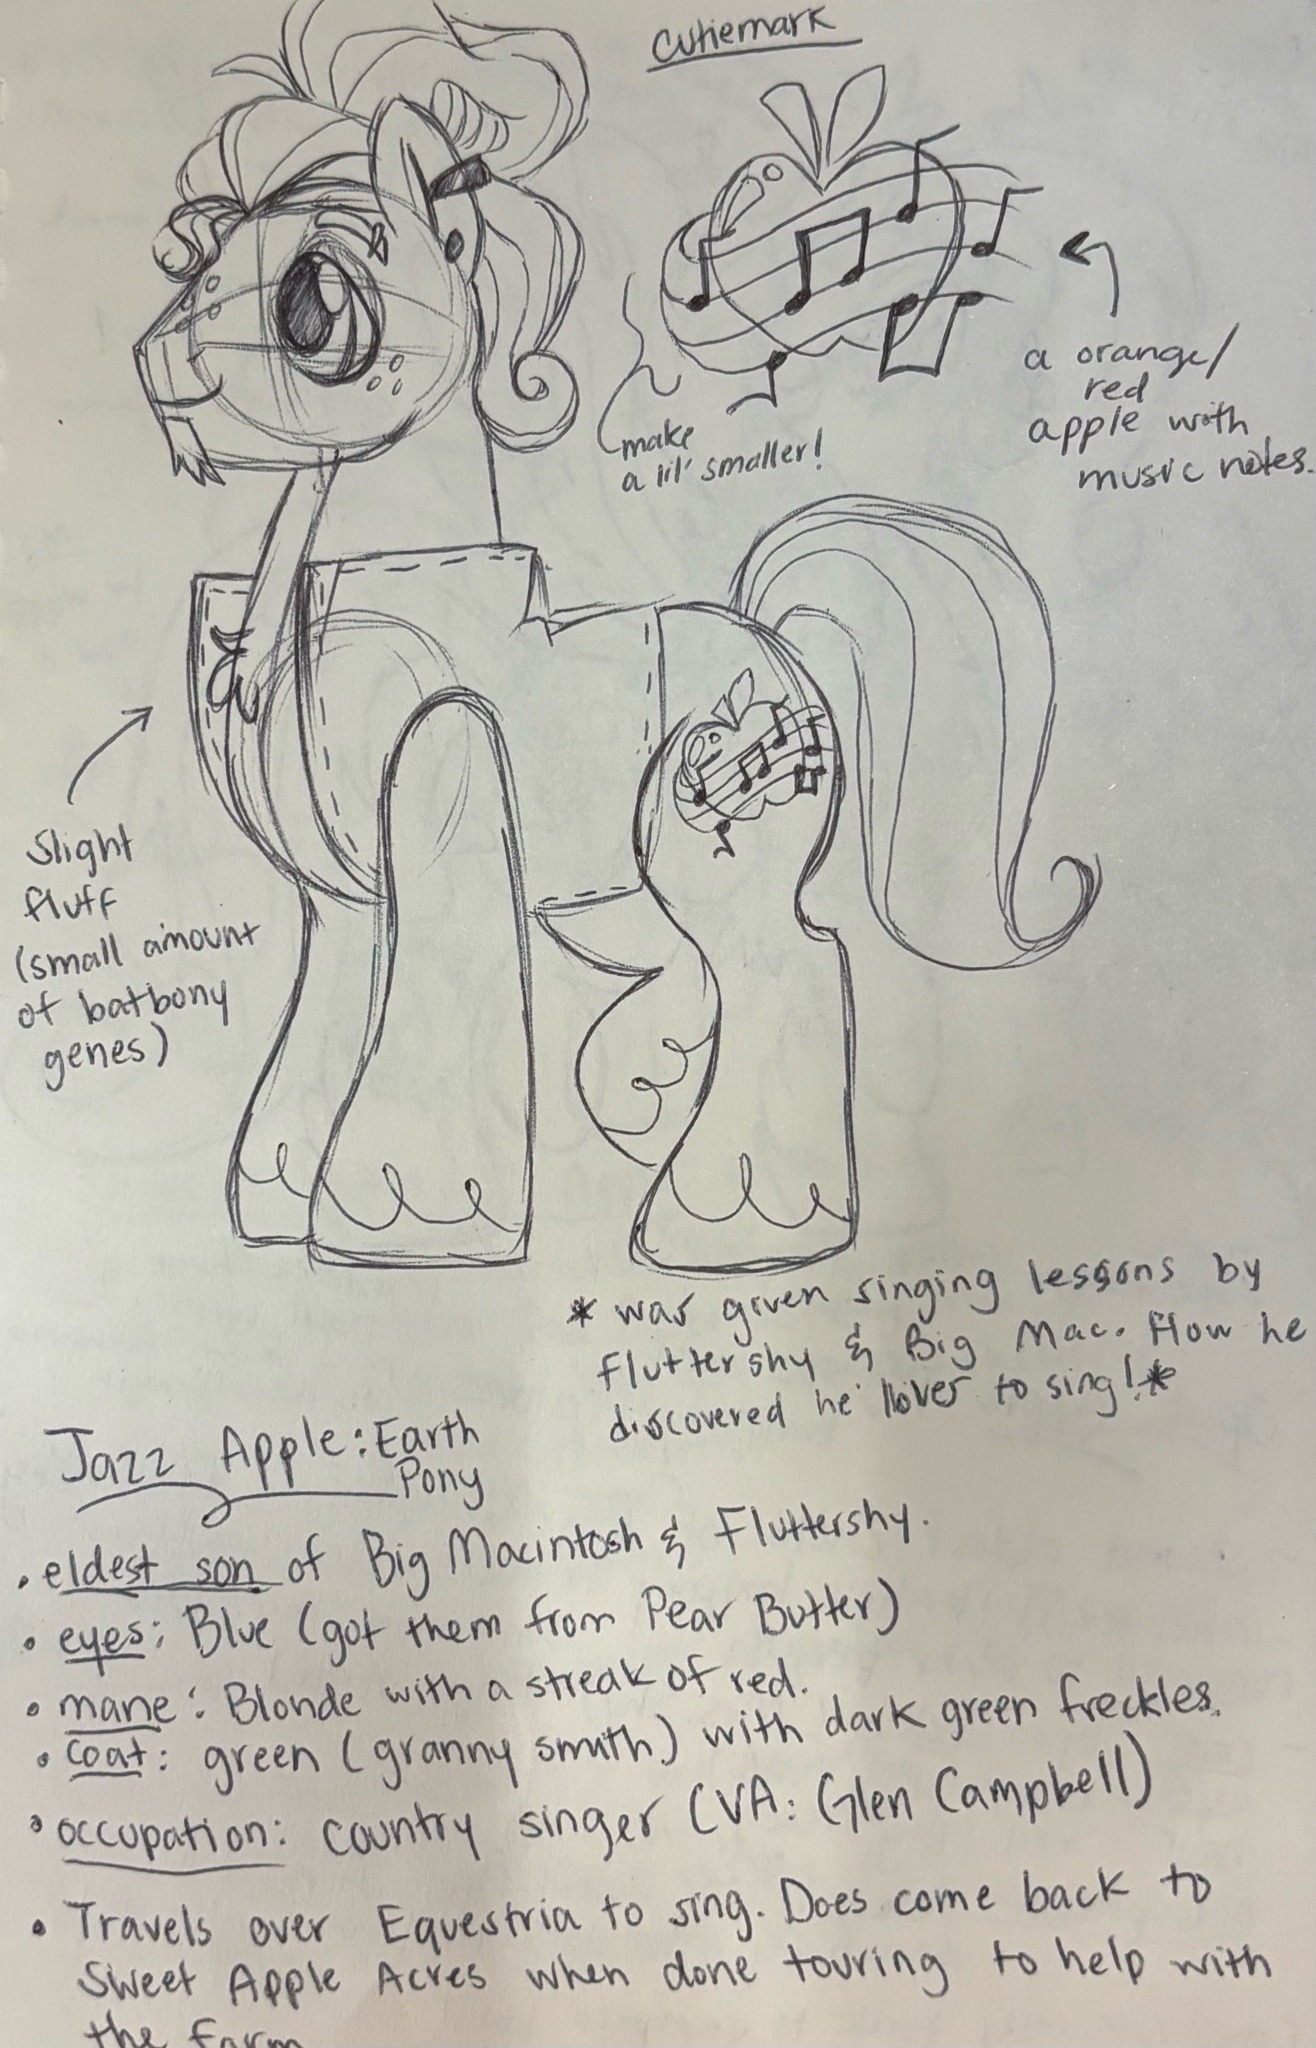 cutiemark
a orange/
red
apple with
music notes.
make
a lil' smaller!
Slight
fluff
(small amount
of batbony
genes)
* was given singing lessons by
Fluttershy & Big Mac. How he
discovered he lover to sing! *
Jazz Apple: Earth
Pony
• eldest son of Big Macintosh & Fluttershy.
• eyes: Blue (got them from Pear Butter)
• mane: Blonde with a streak of red.
• coat: green (granny smith) with dark green freckles.
• occupation: country singer (VA: Glen Campbell)
• Travels over Equestria to sing. Does come back to
Sweet Apple Acres when done touring to help with
the farm